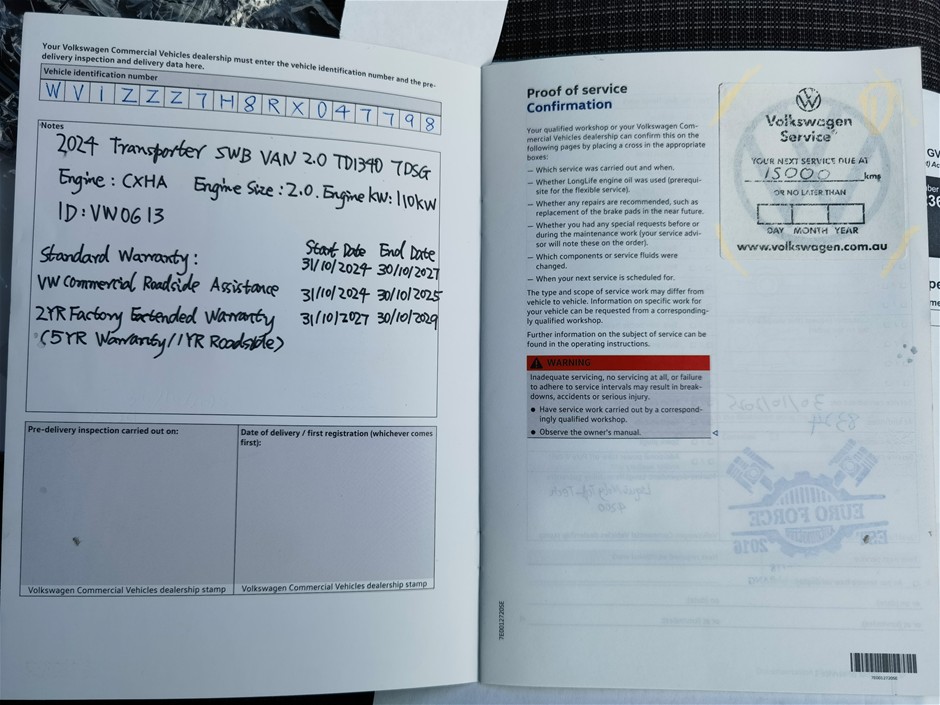 Your Volkswagen Commercial Vehicles dealership must enter the vehicle identification number and the pre-
delivery inspection and delivery data here.
Vehicle identification number
WV1ZZZ7H8RX047798
Notes
2024 Transporter SWB VAN 2.0 TDI340 7DSG
Engine: CXHA Engine Size: 2.0. Engine kW: 110KW
ID: VW0613
Start Date End Date
Standard Warranty: 31/10/2024 30/10/2027
VW Commercial Roadside Assistance 31/10/2024 30/10/2025
2YR Factory Extended Warranty 31/10/2027 30/10/2029
(5YR Warranty/1YR Roadsible)
Pre-delivery inspection carried out on:
Date of delivery / first registration (whichever comes
first):
Volkswagen Commercial Vehicles dealership stamp
Volkswagen Commercial Vehicles dealership stamp
Proof of service
Confirmation
Your qualified workshop or your Volkswagen Com-
mercial Vehicles dealership can confirm this on the
following pages by placing a cross in the appropriate
boxes:
— Which service was carried out and when.
— Whether LongLife engine oil was used (prerequi-
site for the flexible service).
— Whether any repairs are recommended, such as
replacement of the brake pads in the near future.
— Whether you had any special requests before or
during the maintenance work (your service advi-
sor will note these on the order).
— Which components or service fluids were
changed.
— When your next service is scheduled for.
The type and scope of service work may differ from
vehicle to vehicle. Information on specific work for
your vehicle can be requested from a correspond-
ingly qualified workshop.
Further information on the subject of service can be
found in the operating instructions.
WARNING
Inadequate servicing, no servicing at all, or failure
to adhere to service intervals may result in break-
downs, accidents or serious injury.
● Have service work carried out by a correspond-
ingly qualified workshop.
● Observe the owner's manual.
Volkswagen
Service
YOUR NEXT SERVICE DUE AT
15000 kms
OR NO LATER THAN
DAY MONTH YEAR
www.volkswagen.com.au
30/10/2025
8334
EURO FORCE
2016
7E0012720SE
7E0012720SE